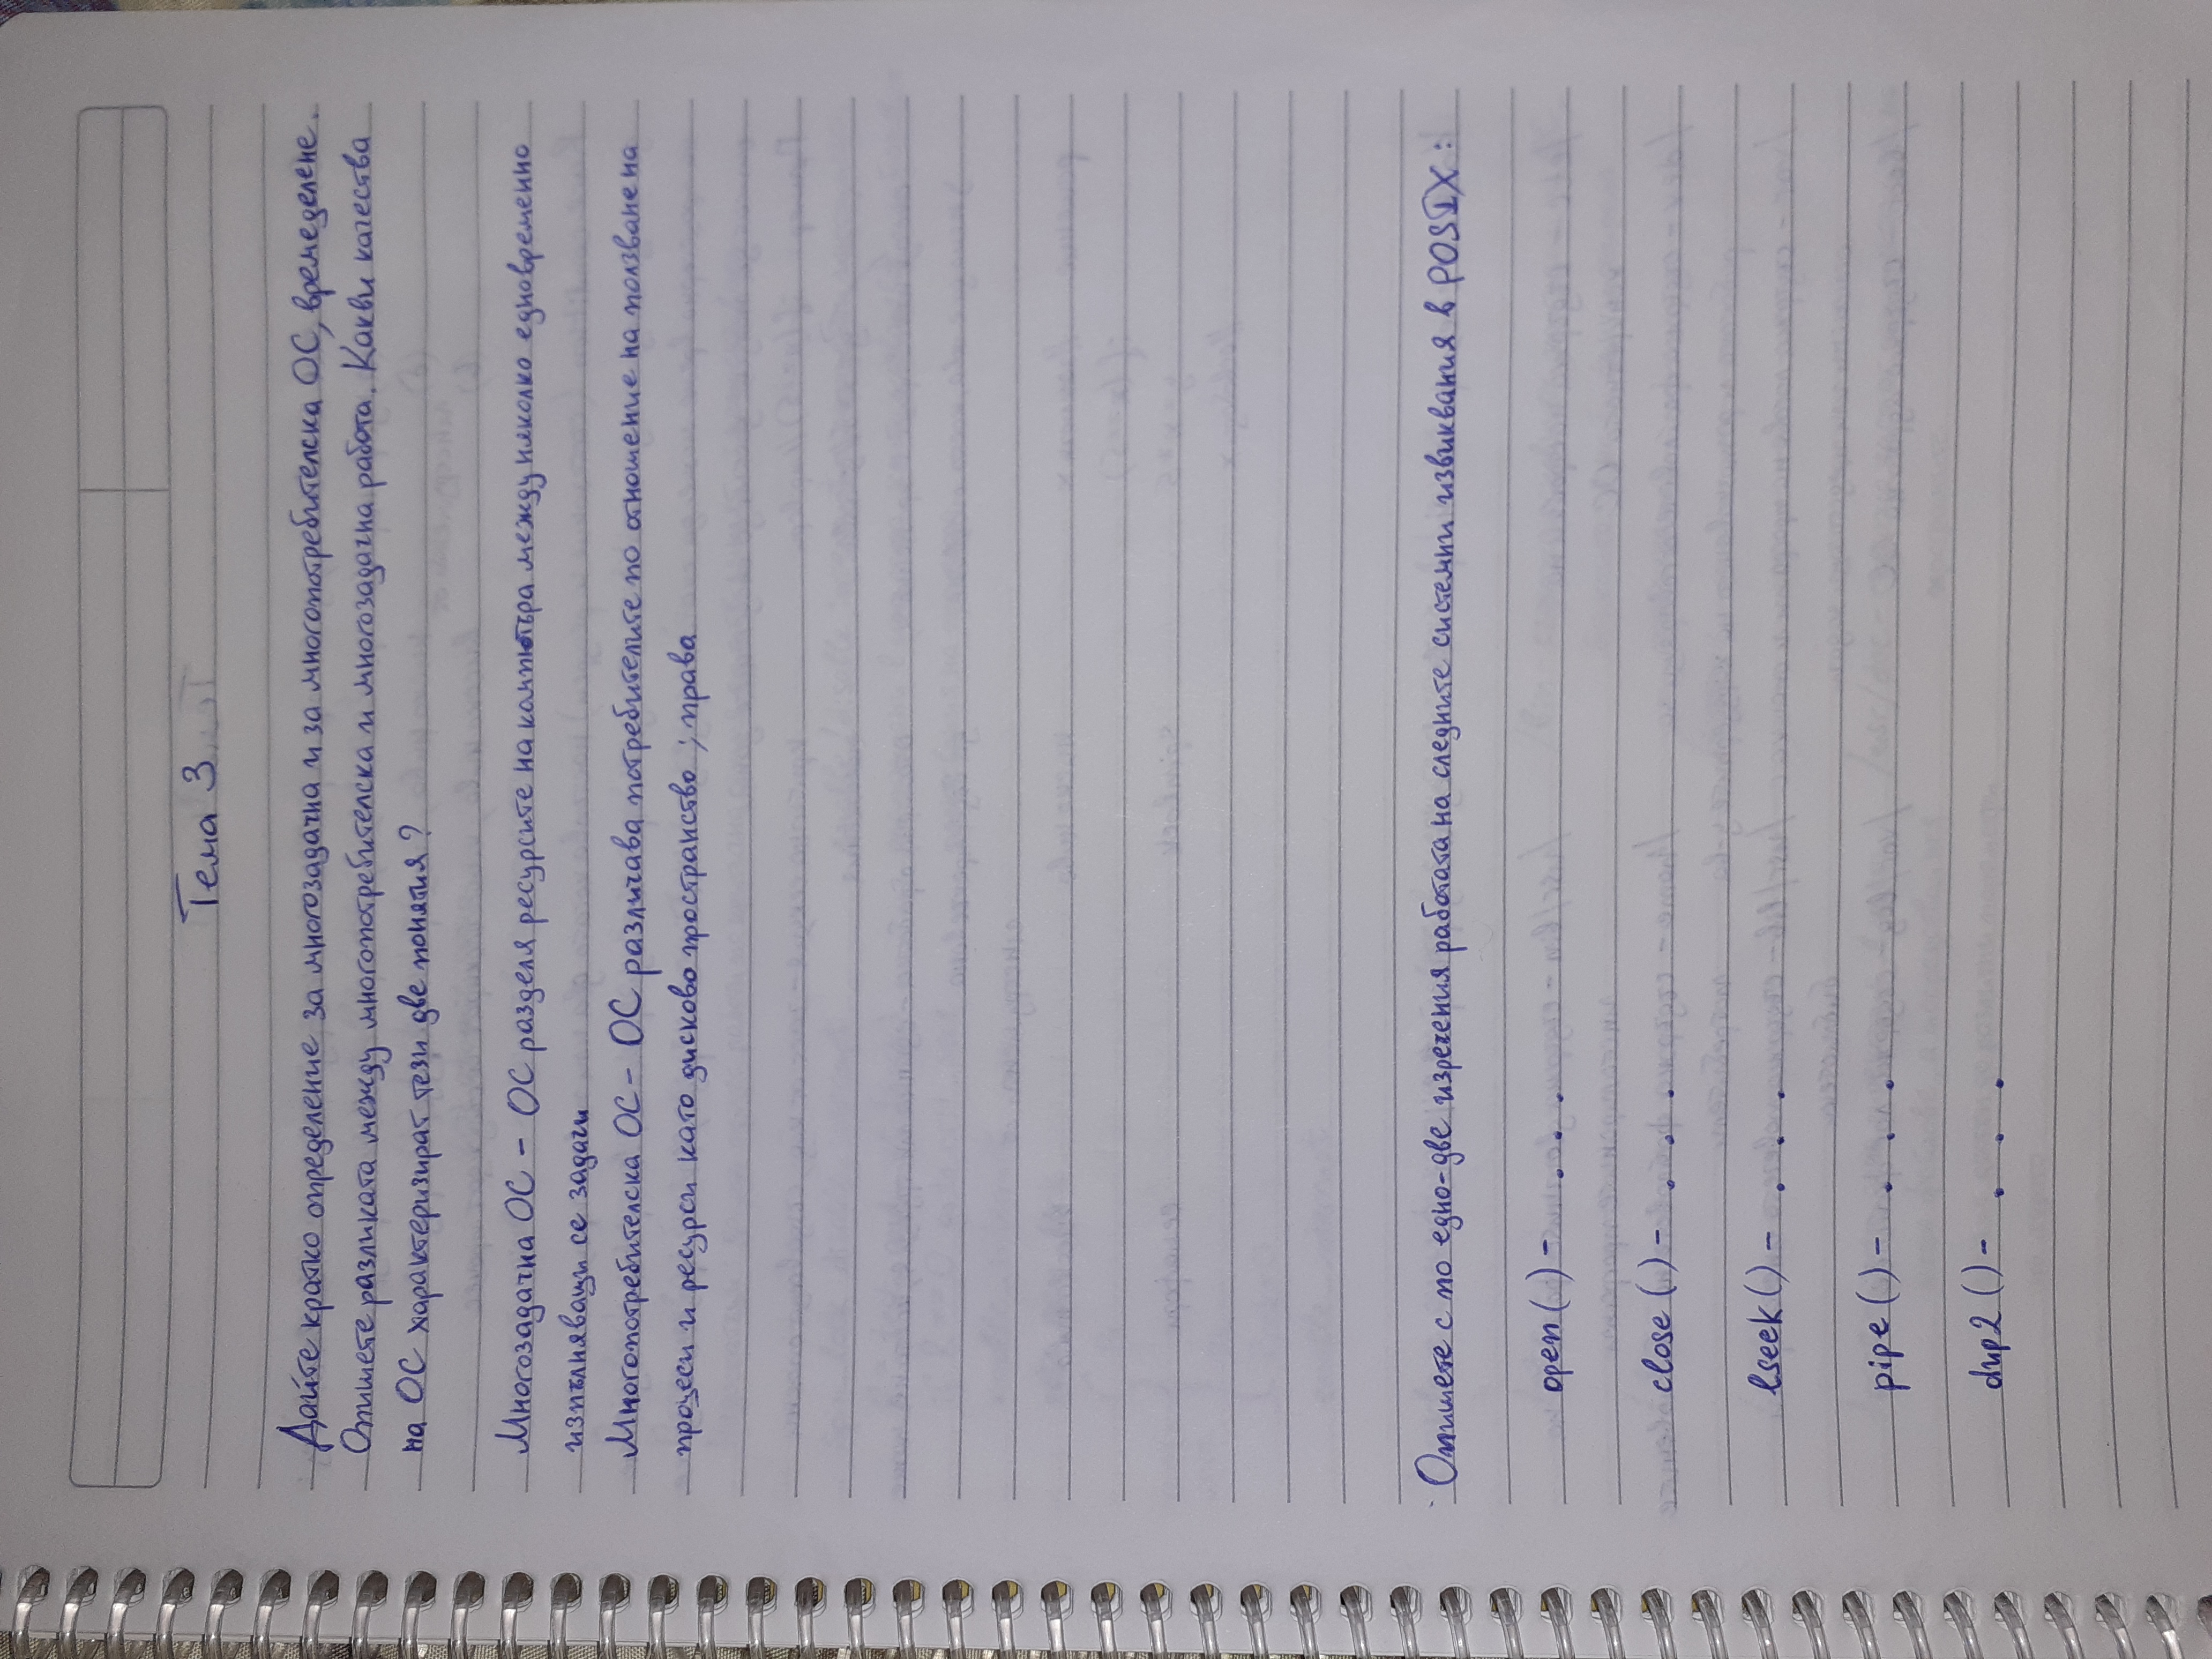 Тема 3
Дайте кратко определение за многозадачна и за многопотребителска ОС, времеделене.
Опишете разликата между многопотребителска и многозадачна работа. Какви качества
на ОС характеризират тези две понятия?
Многозадачна ОС – ОС разделя ресурсите на компютъра между няколко едновременно
изпълняващи се задачи
Многопотребителска ОС – ОС различава потребителите по отношение на ползване на
процеси и ресурси като дисково пространство ; права
Опишете с по едно-две изречения работата на следните системни извиквания в POSIX :
open ( ) – . . .
close ( ) – . . .
lseek ( ) – . . .
pipe ( ) – . . .
dup2 ( ) – . . .